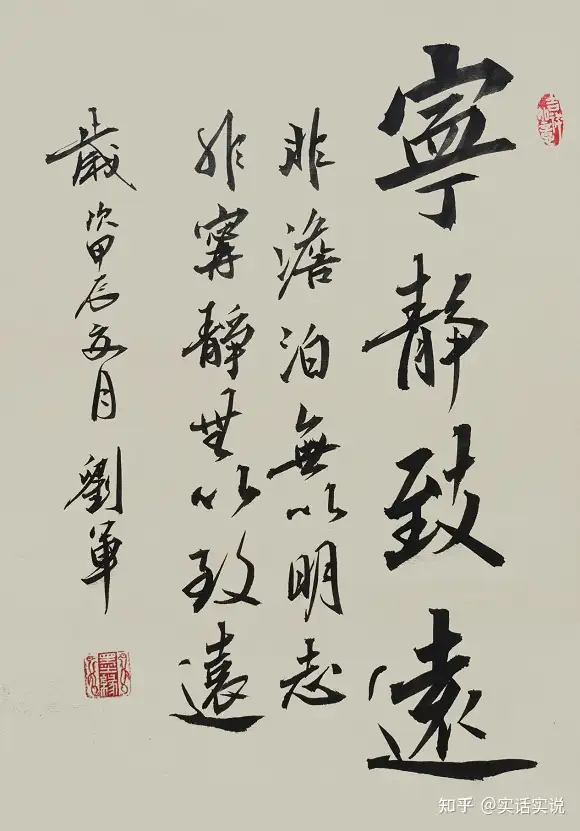 寧靜致遠
非澹泊無以明志
非寧靜無以致遠
歲次甲辰五月 劉軍
知乎 @实话实说